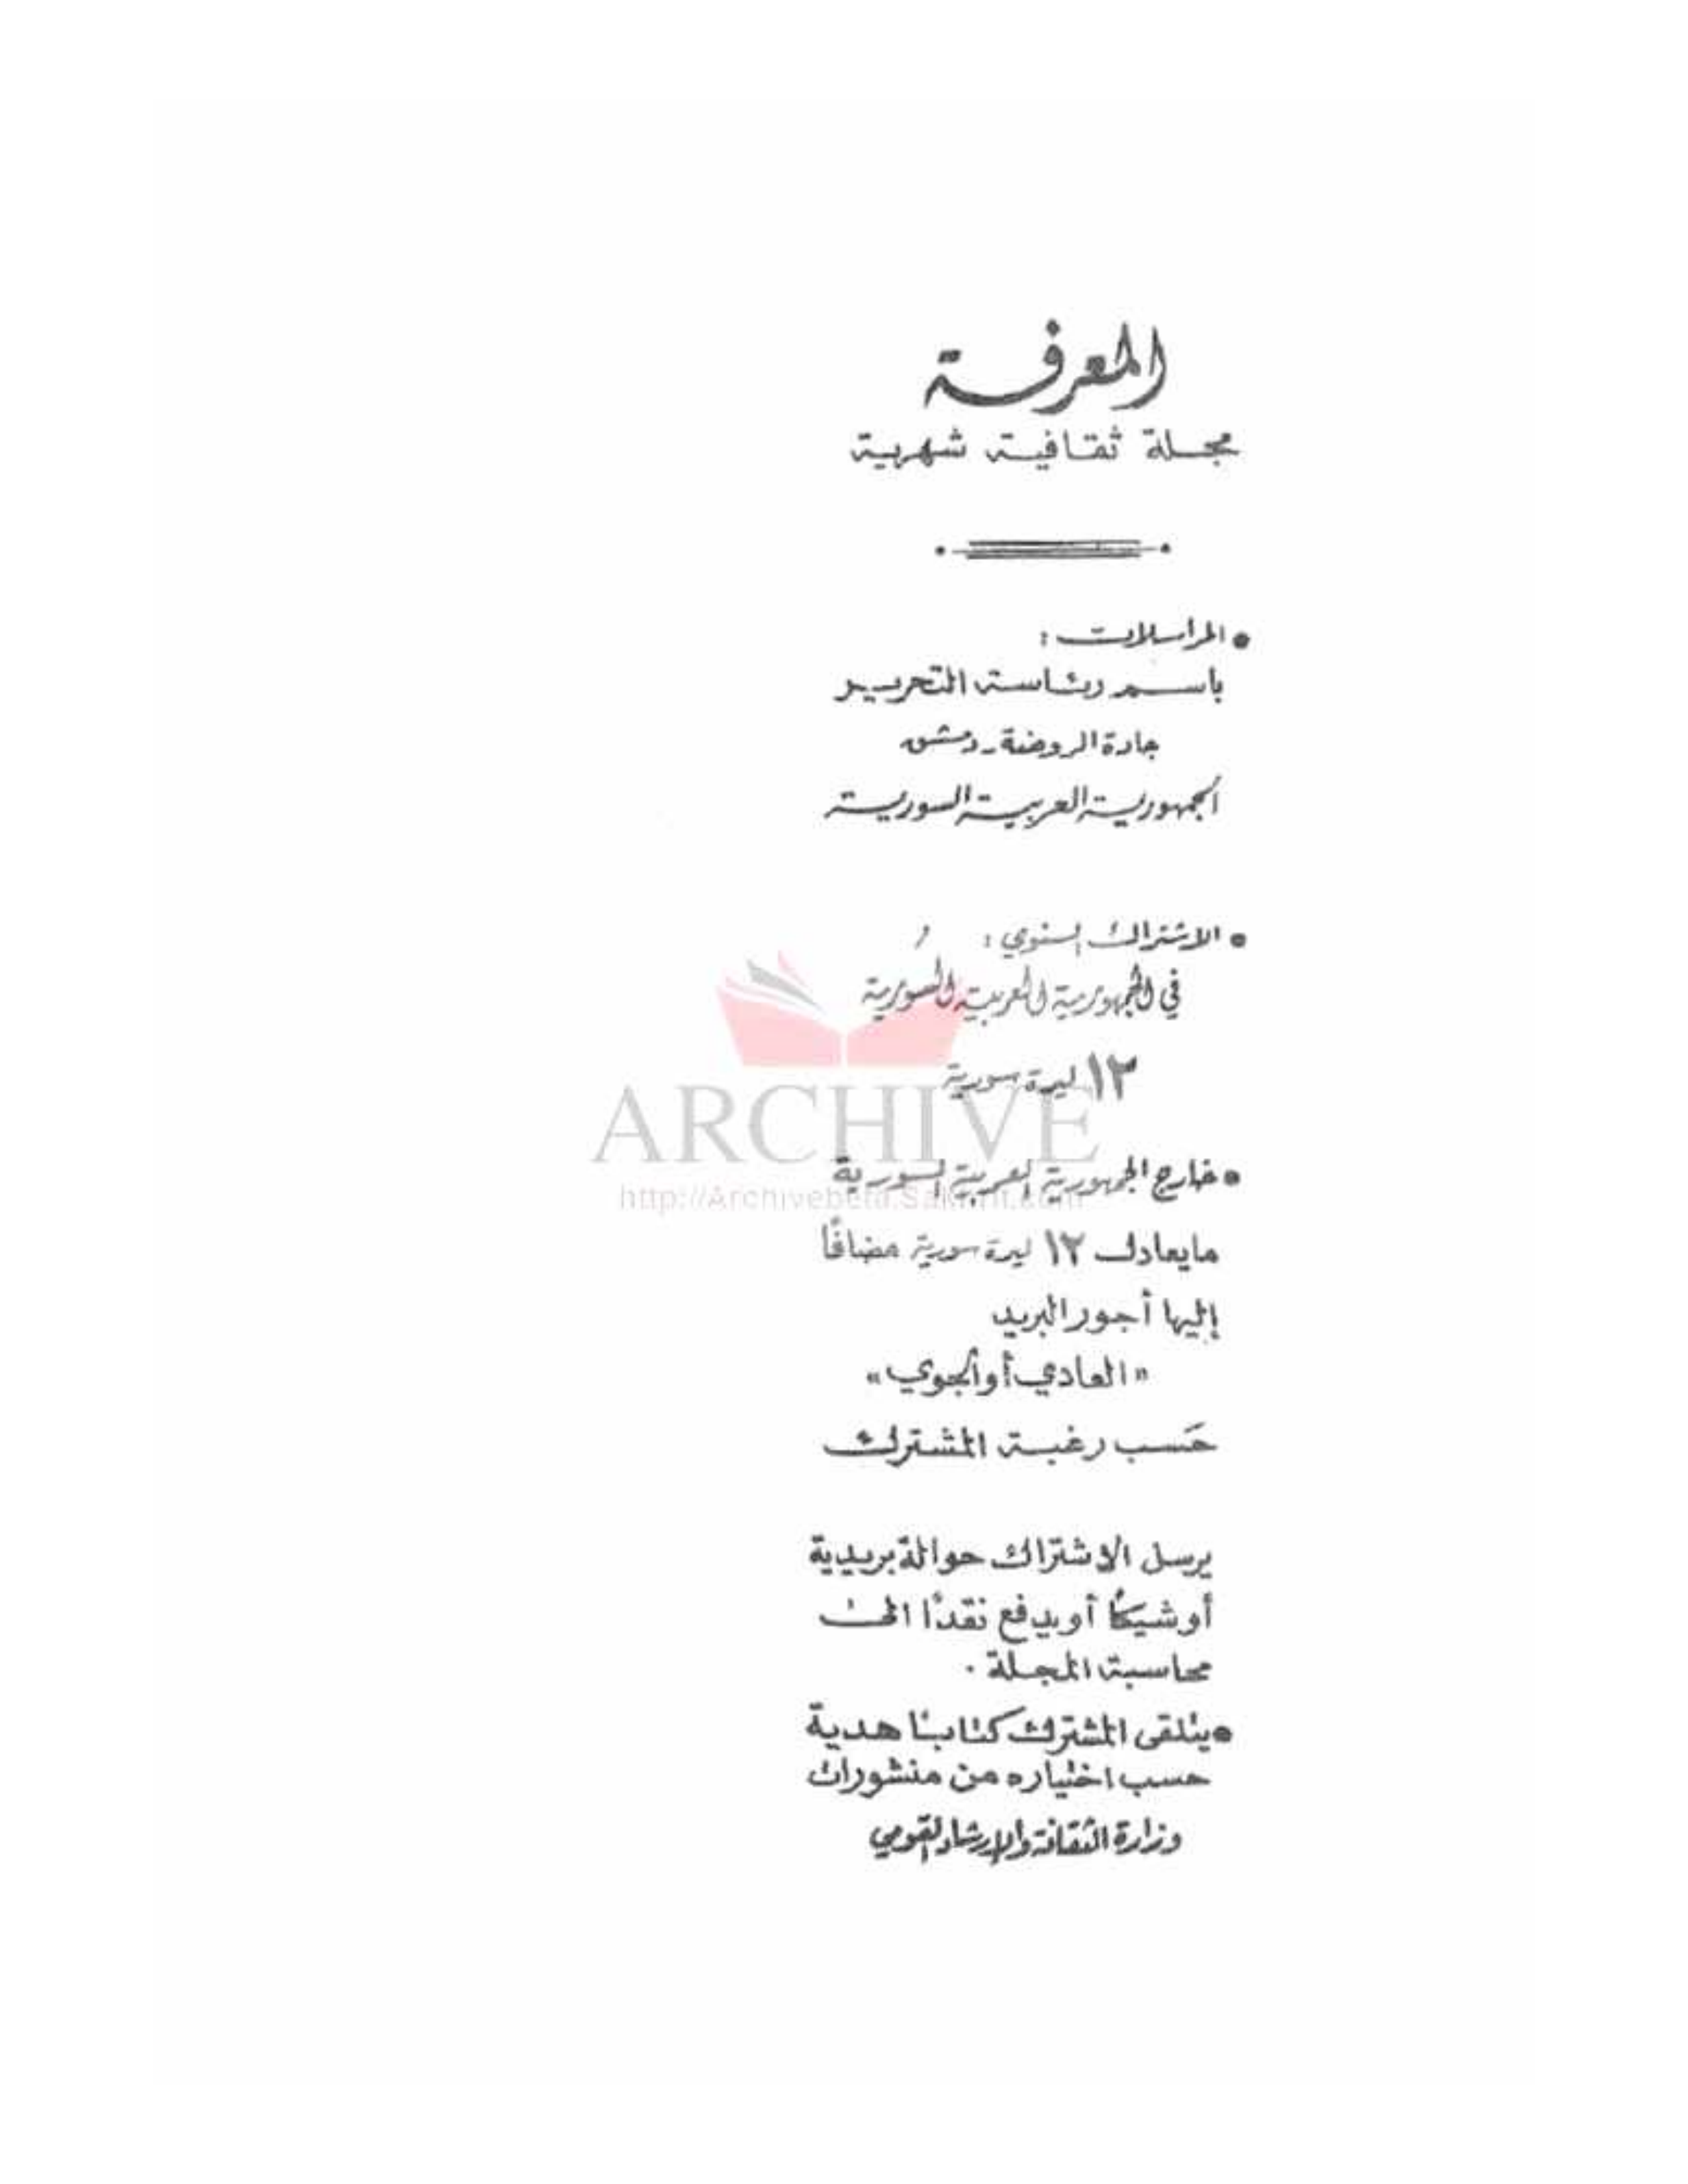 المعرفة
مجلة ثقافية شهرية
• المراسلات :
باسم رئاسة التحرير
جادة الروضة ـ دمشق
الجمهورية العربية السورية
• الاشتراك السنوي :
في الجمهورية العربية السورية
١٢ ليرة سورية
ARCHIVE
• خارج الجمهورية العربية السورية
http://Archivebeta.Sakhrit.com
مايعادل ١٢ ليرة سورية مضافًا
إليها أجور البريد
«العادي أو الجوي»
حَسب رغبة المشترك
يرسل الاشتراك حوالة بريدية
أو شيكًا أو يدفع نقدًا الى
محاسبة المجلة .
• يتلقى المشترك كتابًا هدية
حسب اختياره من منشورات
وزارة الثقافة والإرشاد القومي